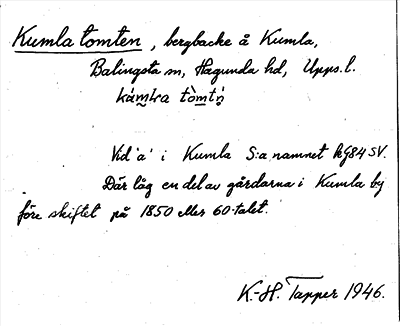 Kumla tomten, bergbacke å Kumla,
Balingsta sn, Hagunda hd, Upps. l.
Vid 'a' i Kumla S:a namnet kg84 SV.
Där låg en del av gårdarna i Kumla by
före skiftet på 1850 eller 60-talet.
K.-H. Tapper 1946.